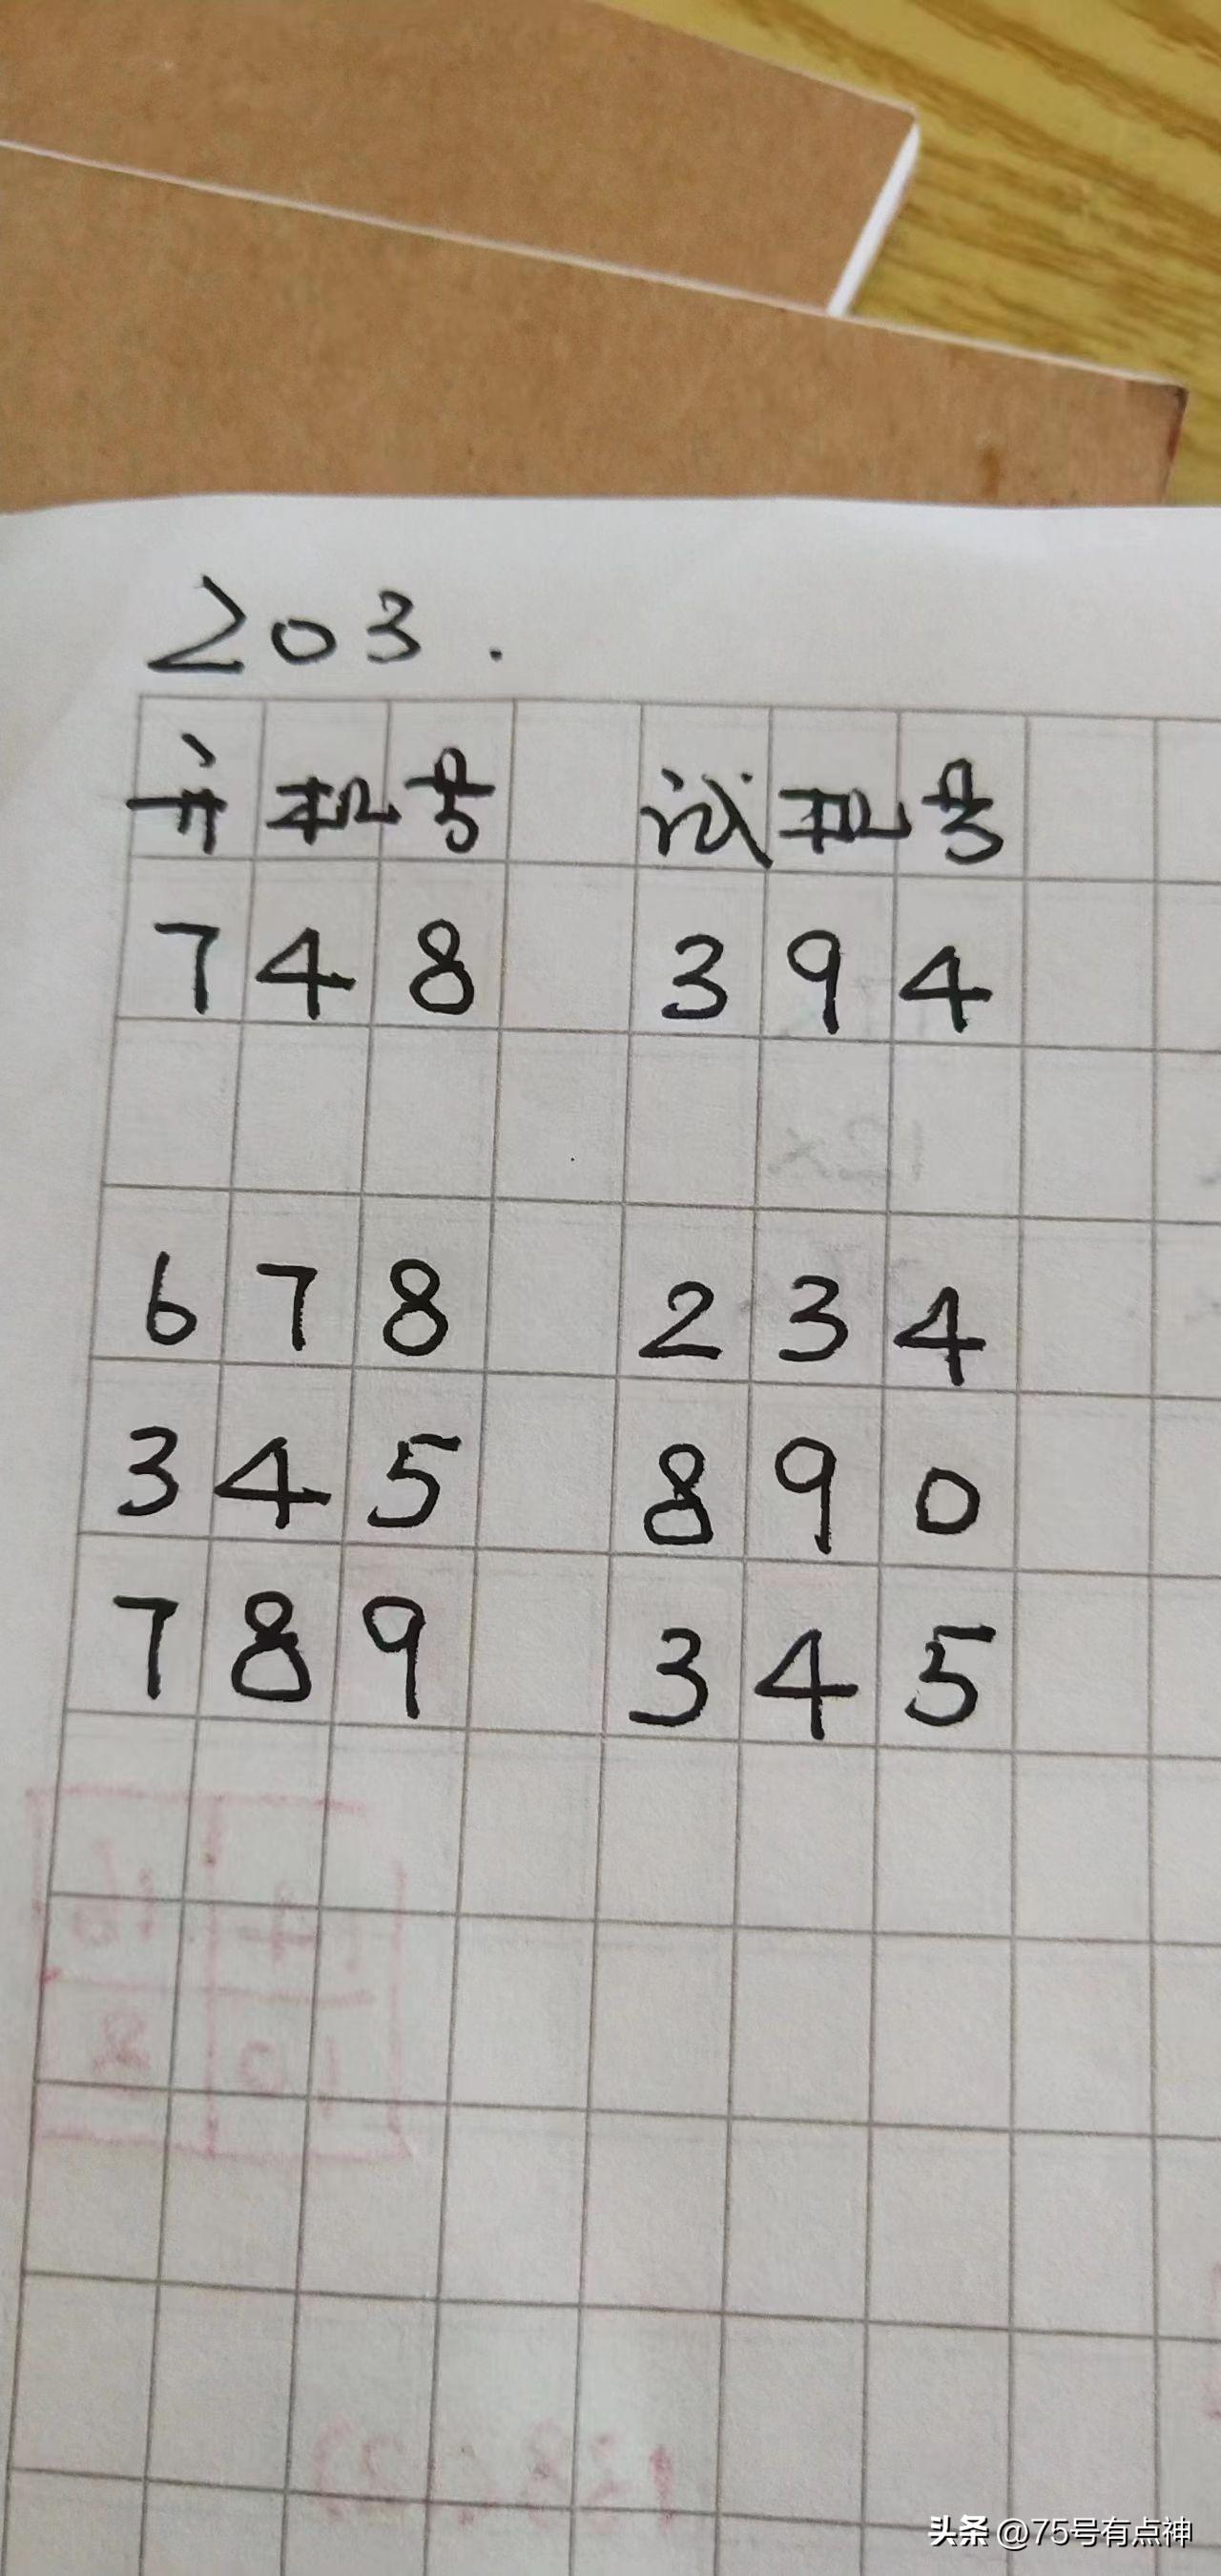 203.
开机号 试机号
748 394
678 234
345 890
789 345
头条 @75号有点神